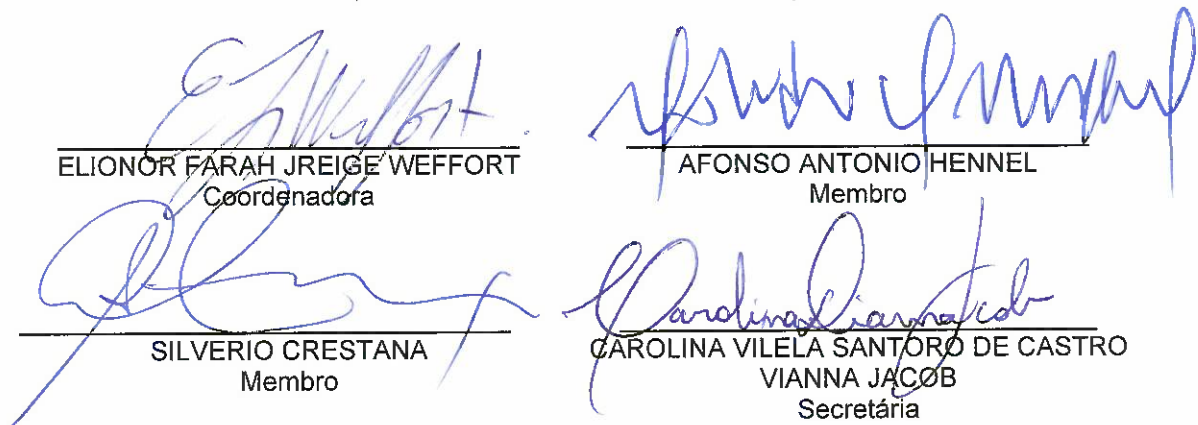 ELIONOR FARAH JREIGE WEFFORT
Coordenadora
AFONSO ANTONIO HENNEL
Membro
SILVERIO CRESTANA
Membro
Carolina Vianna Jacob
CAROLINA VILELA SANTORO DE CASTRO
VIANNA JACOB
Secretária